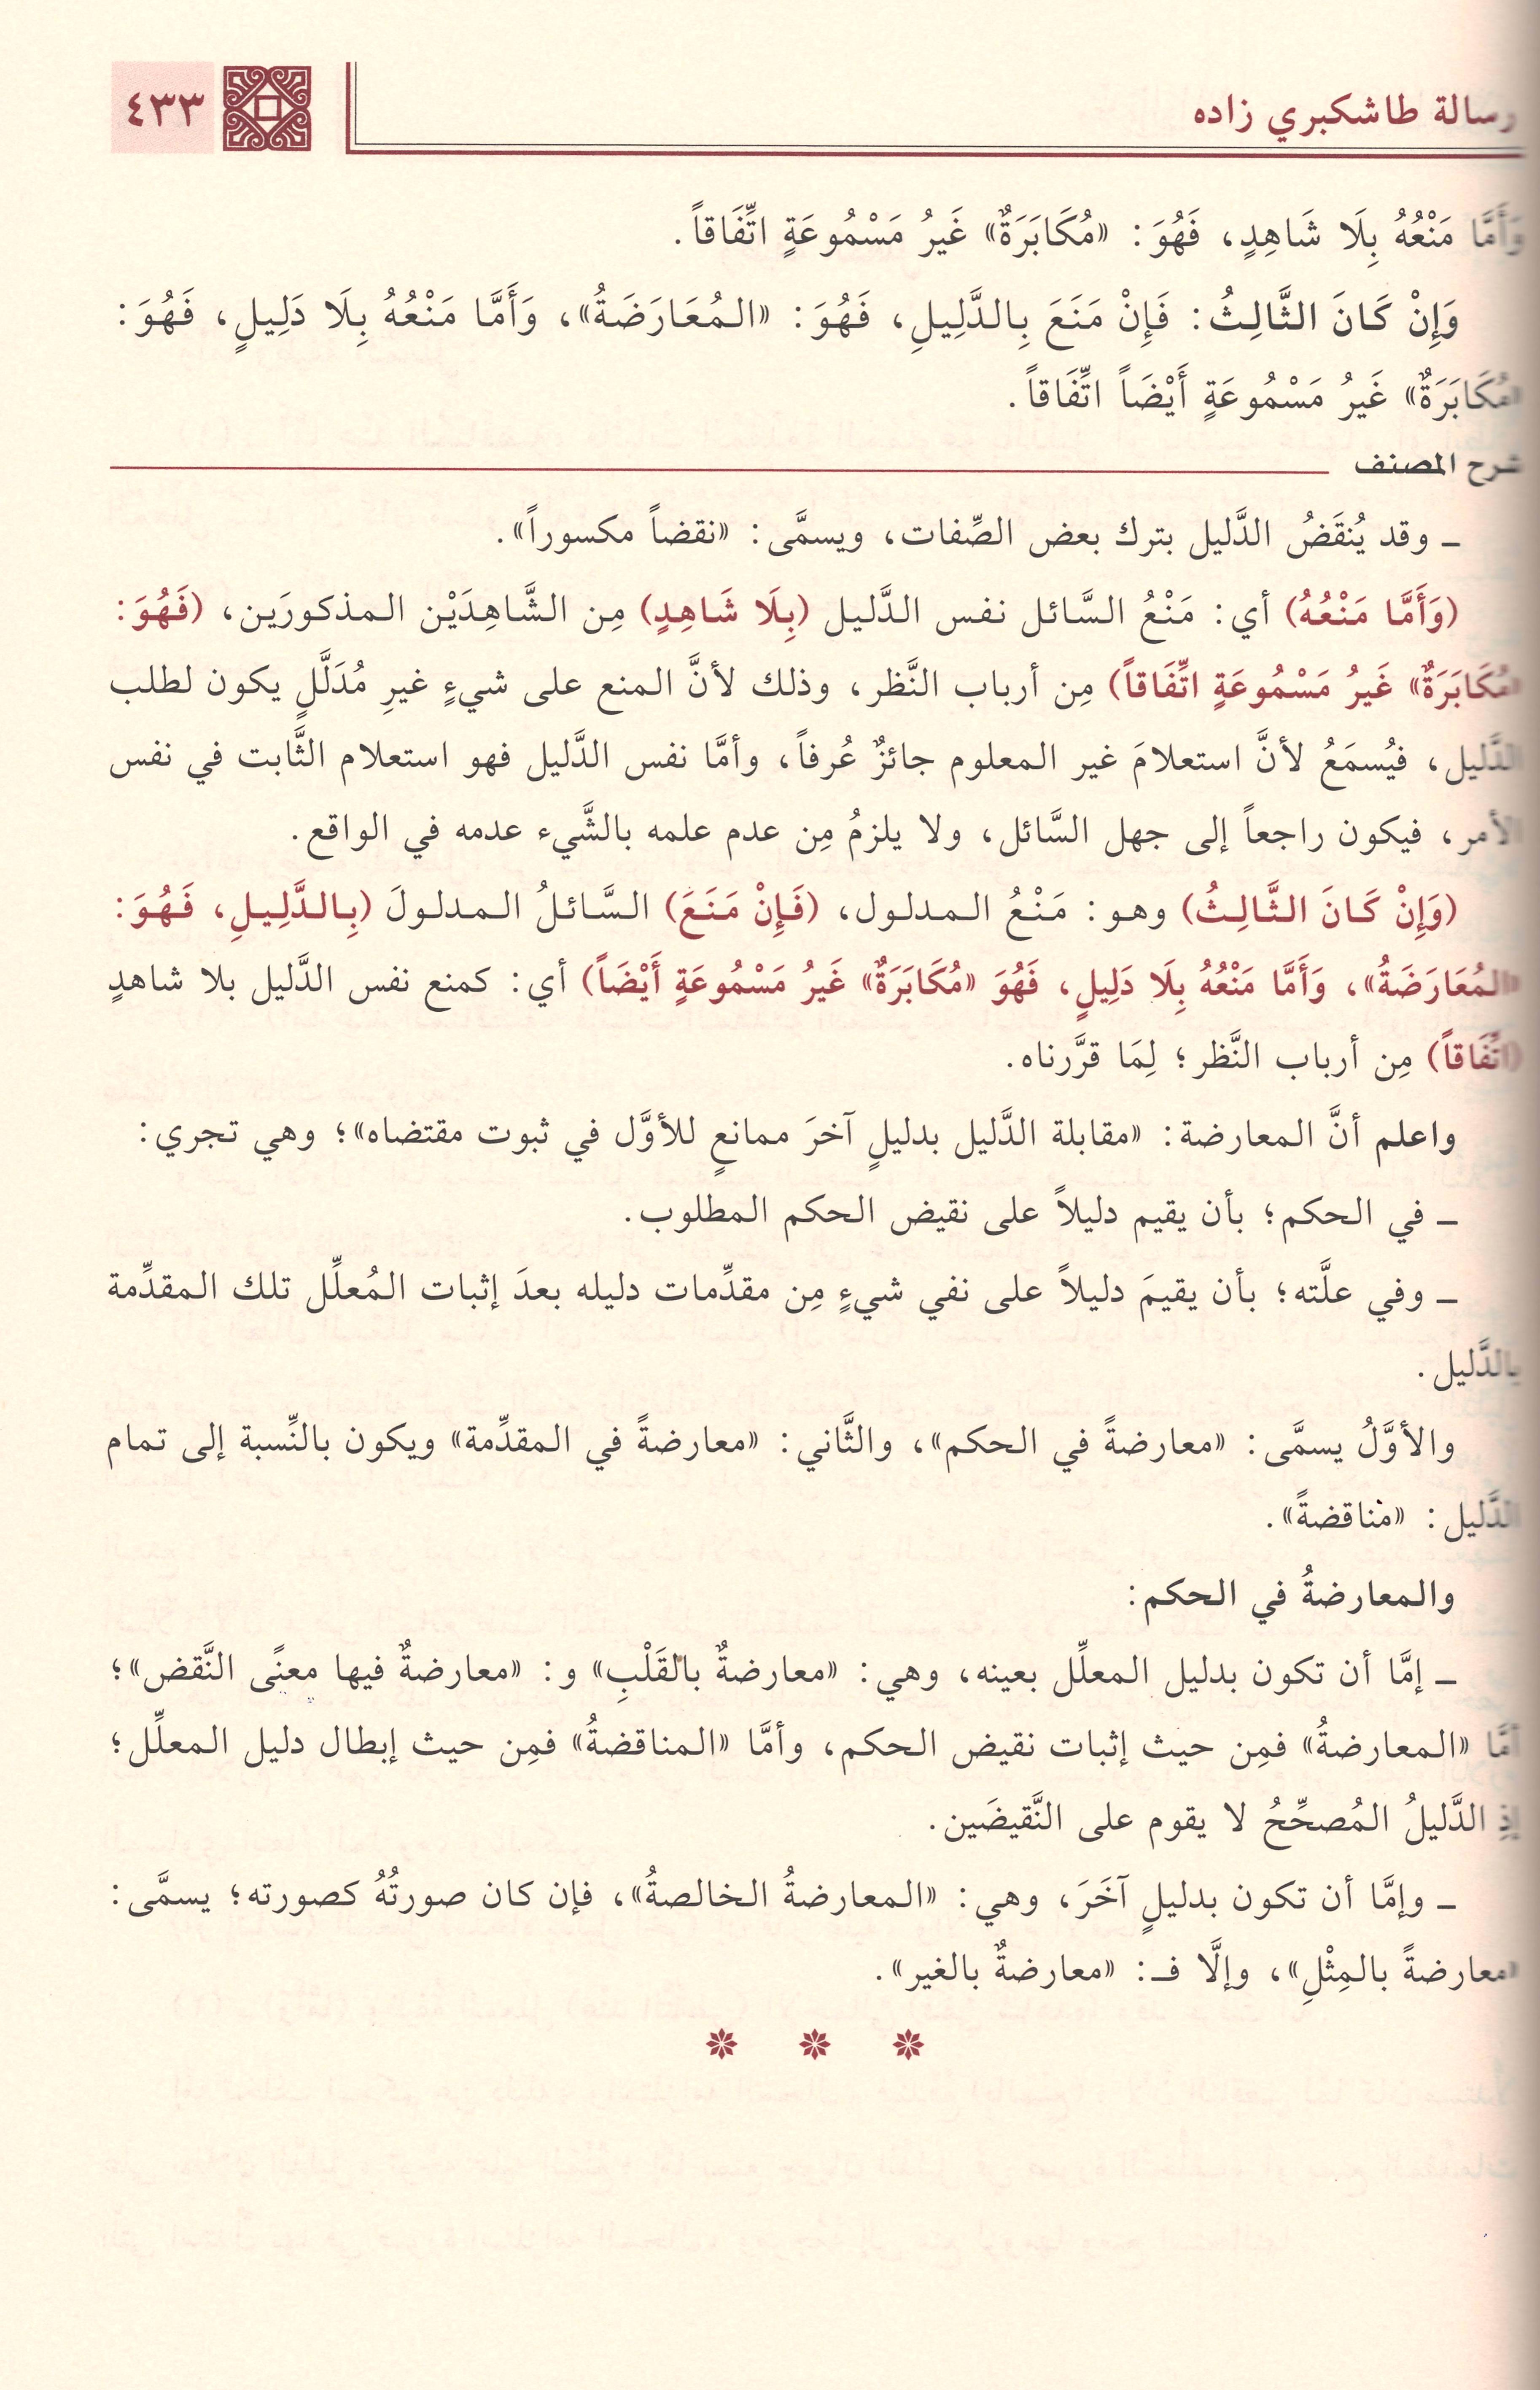 رسالة طاشكبري زاده
٤٣٣
وَأَمَّا مَنْعُهُ بِلَا شَاهِدٍ، فَهُوَ: «مُكَابَرَةٌ» غَيرُ مَسْمُوعَةٍ اتِّفَاقاً.
وَإِنْ كَانَ الثَّالِثُ: فَإِنْ مَنَعَ بِالدَّلِيلِ، فَهُوَ: «المُعَارَضَةُ»، وَأَمَّا مَنْعُهُ بِلَا دَلِيلٍ، فَهُوَ:
«مُكَابَرَةٌ» غَيرُ مَسْمُوعَةٍ أَيْضَاً اتِّفَاقاً.
شرح المصنف
ـ وقد يُنقَضُ الدَّليل بترك بعض الصِّفات، ويسمَّى: «نقضاً مكسوراً».
(وَأَمَّا مَنْعُهُ) أي: مَنْعُ السَّائل نفس الدَّليل (بِلَا شَاهِدٍ) مِن الشَّاهِدَيْن المذكورَين، (فَهُوَ:
«مُكَابَرَةٌ» غَيرُ مَسْمُوعَةٍ اتِّفَاقاً) مِن أرباب النَّظر، وذلك لأنَّ المنع على شيءٍ غيرِ مُدَلَّلٍ يكون لطلب
الدَّليل، فيُسمَعُ لأنَّ استعلامَ غير المعلوم جائزٌ عُرفاً، وأمَّا نفس الدَّليل فهو استعلام الثَّابت في نفس
الأمر، فيكون راجعاً إلى جهل السَّائل، ولا يلزمُ مِن عدم علمه بالشَّيء عدمه في الواقع.
(وَإِنْ كَانَ الثَّالِثُ) وهو: مَنْعُ المدلول، (فَإِنْ مَنَعَ) السَّائلُ المدلولَ (بِالدَّلِيلِ، فَهُوَ:
«المُعَارَضَةُ»، وَأَمَّا مَنْعُهُ بِلَا دَلِيلٍ، فَهُوَ «مُكَابَرَةٌ» غَيرُ مَسْمُوعَةٍ أَيْضَاً) أي: كمنع نفس الدَّليل بلا شاهدٍ
(اتِّفَاقاً) مِن أرباب النَّظر؛ لِمَا قرَّرناه.
واعلم أنَّ المعارضة: «مقابلة الدَّليل بدليلٍ آخرَ ممانعٍ للأوَّل في ثبوت مقتضاه»؛ وهي تجري:
ـ في الحكم؛ بأن يقيم دليلاً على نقيض الحكم المطلوب.
ـ وفي علَّته؛ بأن يقيمَ دليلاً على نفي شيءٍ مِن مقدِّمات دليله بعدَ إثبات المُعلِّل تلك المقدِّمة
بالدَّليل.
والأوَّلُ يسمَّى: «معارضةً في الحكم»، والثَّاني: «معارضةً في المقدِّمة» ويكون بالنِّسبة إلى تمام
الدَّليل: «مناقضةً».
والمعارضةُ في الحكم:
ـ إمَّا أن تكون بدليل المعلِّل بعينه، وهي: «معارضةٌ بالقَلْبِ» و: «معارضةٌ فيها معنًى النَّقض»؛
أمَّا «المعارضةُ» فمِن حيث إثبات نقيض الحكم، وأمَّا «المناقضةُ» فمِن حيث إبطال دليل المعلِّل؛
إذِ الدَّليلُ المُصحِّحُ لا يقوم على النَّقيضَين.
ـ وإمَّا أن تكون بدليلٍ آخَرَ، وهي: «المعارضةُ الخالصةُ»، فإن كان صورتُهُ كصورته؛ يسمَّى:
«معارضةً بالمِثْلِ»، وإلَّا فـ: «معارضةٌ بالغير».